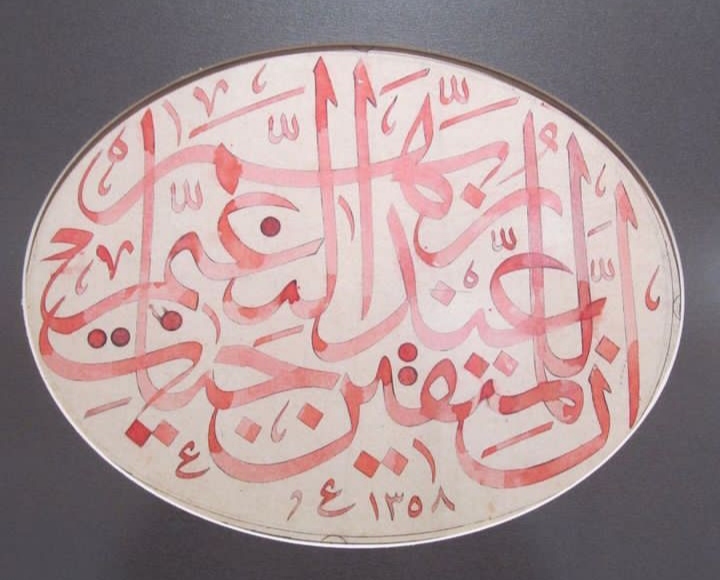 إن للمتقين عند ربهم جنات النعيم
١٣٥٨